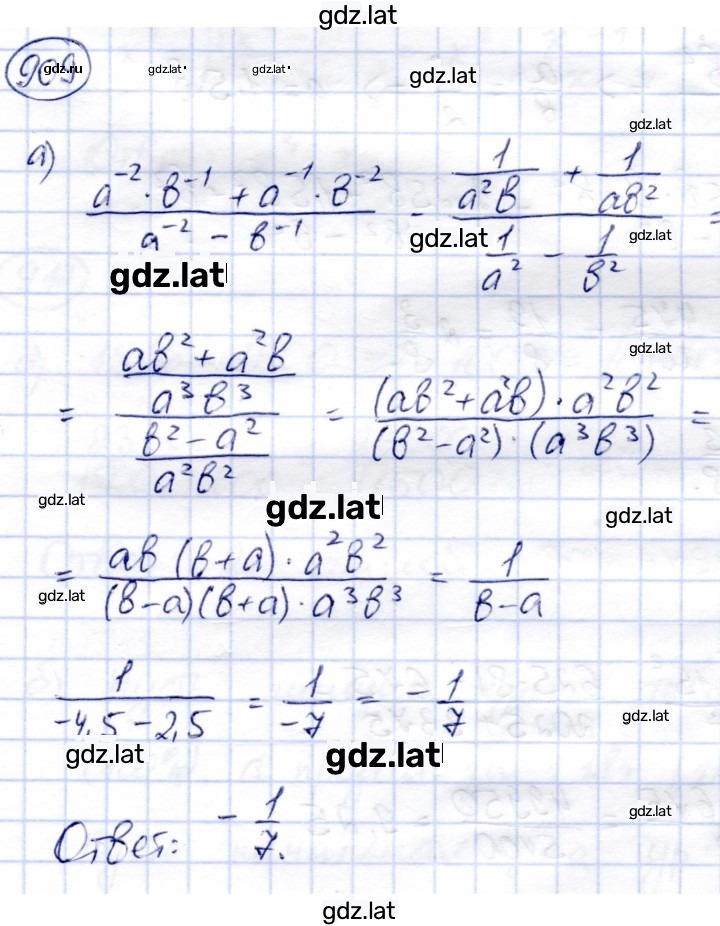 gdz.lat
909 gdz.ru gdz.lat gdz.lat gdz.lat
gdz.lat
а) (a⁻² · b⁻¹ + a⁻¹ · b⁻²) / (a⁻² − b⁻¹) - (1/(a²b) + 1/(ab²)) / (1/a² − 1/b²) =
gdz.lat gdz.lat
gdz.lat
gdz.lat
= ((ab² + a²b)/(a³b³)) / ((b² − a²)/(a²b²)) = ((ab² + a²b) · a²b²) / ((b² − a²) · (a³b³)) =
gdz.lat gdz.lat gdz.lat
= (ab (b + a) · a²b²) / ((b − a)(b + a) · a³b³) = 1/(b − a)
gdz.lat
1/(−4,5 − 2,5) = 1/(−7) = − 1/7
gdz.lat
gdz.lat gdz.lat
gdz.lat
Ответ: − 1/7.
gdz.lat